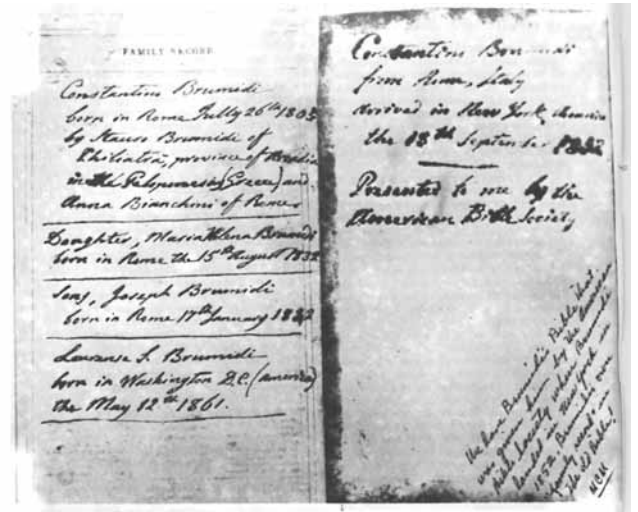 FAMILY RECORD
Constantino Brumidi
born in Rome Jully 26th 1805
by Stauro Brumidi of
Philiatra, province of Arcadia
in the Peloponesos (Greece) and
Anna Bianchini of Rome
Daughter, Maria Elena Brumidi
born in Rome the 15th August 1832
Son, Joseph Brumidi
born in Rome 17th January 1842
Laurence S. Brumidi
born in Washington D.C. (America)
the May 12th 1861.
Constantino Brumidi
from Rome, Italy
arrived in New York, America
the 18th September 1852
Presented to me by the
American Bible Society
We have Brumidi's Bible that
was given him by the American
Bible Society when Brumidi
landed in New York in
1852. Brumidi's own
family record in
old Bible!
MCM